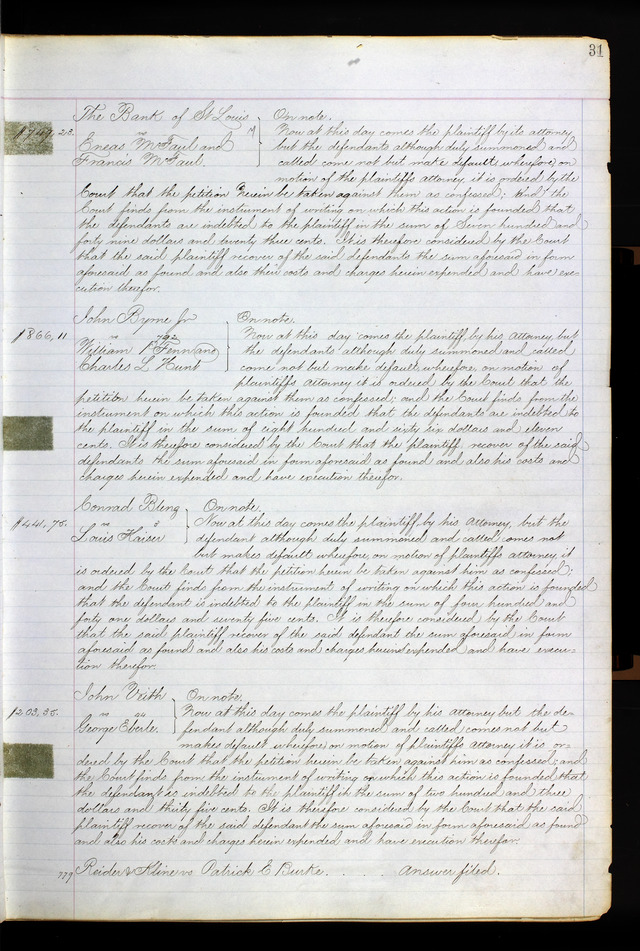 31
The Bank of St Louis On note.
$749,23. vs Now at this day comes the plaintiff by its attorney
Eneas McFaul and but the defendants although duly summoned and
Francis McFaul. called come not but make default, wherefore, on
motion of the plaintiffs attorney it is ordered by the
Court that the petition herein be taken against them as confessed; and the
Court finds from the instrument of writing on which this action is founded that
the defendants are indebted to the plaintiff in the sum of Seven hundred and
forty nine dollars and twenty three cents. It is therefore considered by the Court
that the said plaintiff recover of the said defendants the sum aforesaid in form
aforesaid as found and also their costs and charges herein expended and have exe-
cution therefor.
John Byrne Jr On note.
$866,11 vs 792 Now at this day comes the plaintiff, by his attorney, but
William P Fenn and the defendants although duly summoned and called
Charles L Hunt come not but make default, wherefore, on motion of
plaintiffs attorney it is ordered by the Court that the
petition herein be taken against them as confessed; and the Court finds from the
instrument on which this action is founded that the defendants are indebted to
the plaintiff in the sum of eight hundred and sixty six dollars and eleven
cents. It is therefore considered by the Court that the plaintiff recover of the said
defendants the sum aforesaid in form aforesaid as found and also his costs and
charges herein expended and have execution therefor.
Conrad Bleng On note.
$441,75. vs 3 Now at this day comes the plaintiff by his attorney, but the
Louis Kaiser defendant although duly summoned and called comes not
but makes default wherefore, on motion of plaintiffs attorney, it
is ordered by the Court that the petition herein be taken against him as confessed;
and the Court finds from the instrument of writing on which this action is founded
that the defendant is indebted to the plaintiff in the sum of four hundred and
forty one dollars and seventy five cents. It is therefore considered by the Court
that the said plaintiff recover of the said defendant the sum aforesaid in form
aforesaid as found and also his costs and charges herein expended and have execu-
tion therefor.
John Veith On note.
$203,35. vs 54 Now at this day comes the plaintiff by his attorney but the de-
George Eberle. fendant although duly summoned and called comes not but
makes default wherefore on motion of plaintiffs attorney it is or-
dered by the Court that the petition herein be taken against him as confessed; and
the Court finds from the instrument of writing on which this action is founded that
the defendant is indebted to the plaintiff in the sum of two hundred and three
dollars and thirty five cents. It is therefore considered by the Court that the said
plaintiff recover of the said defendant the sum aforesaid in form aforesaid as found
and also his costs and charges herein expended and have execution therefor.
779 Reider & Kline vs Patrick E Burke. . . . . Answer filed.